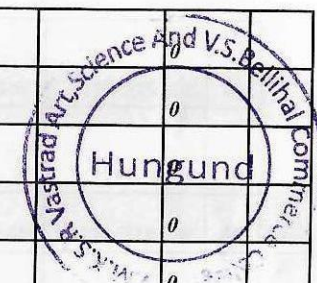 V.M.K.S.R Vastrad Art,Science And V.S.Bellihal Commerce
Hungund
0
0
0
0
0